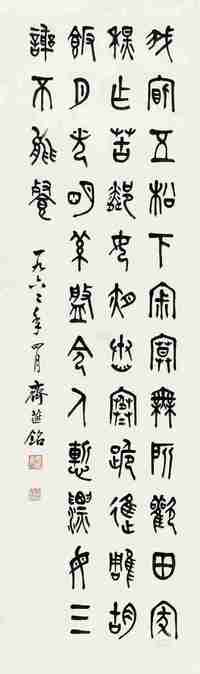 我宿五松下寂寥無所歡田家
秋作苦鄰女夜舂寒跪進雕胡
飯月光明素盤令人慚漂母三
謝不能餐
一九六二年四月 齊燕銘